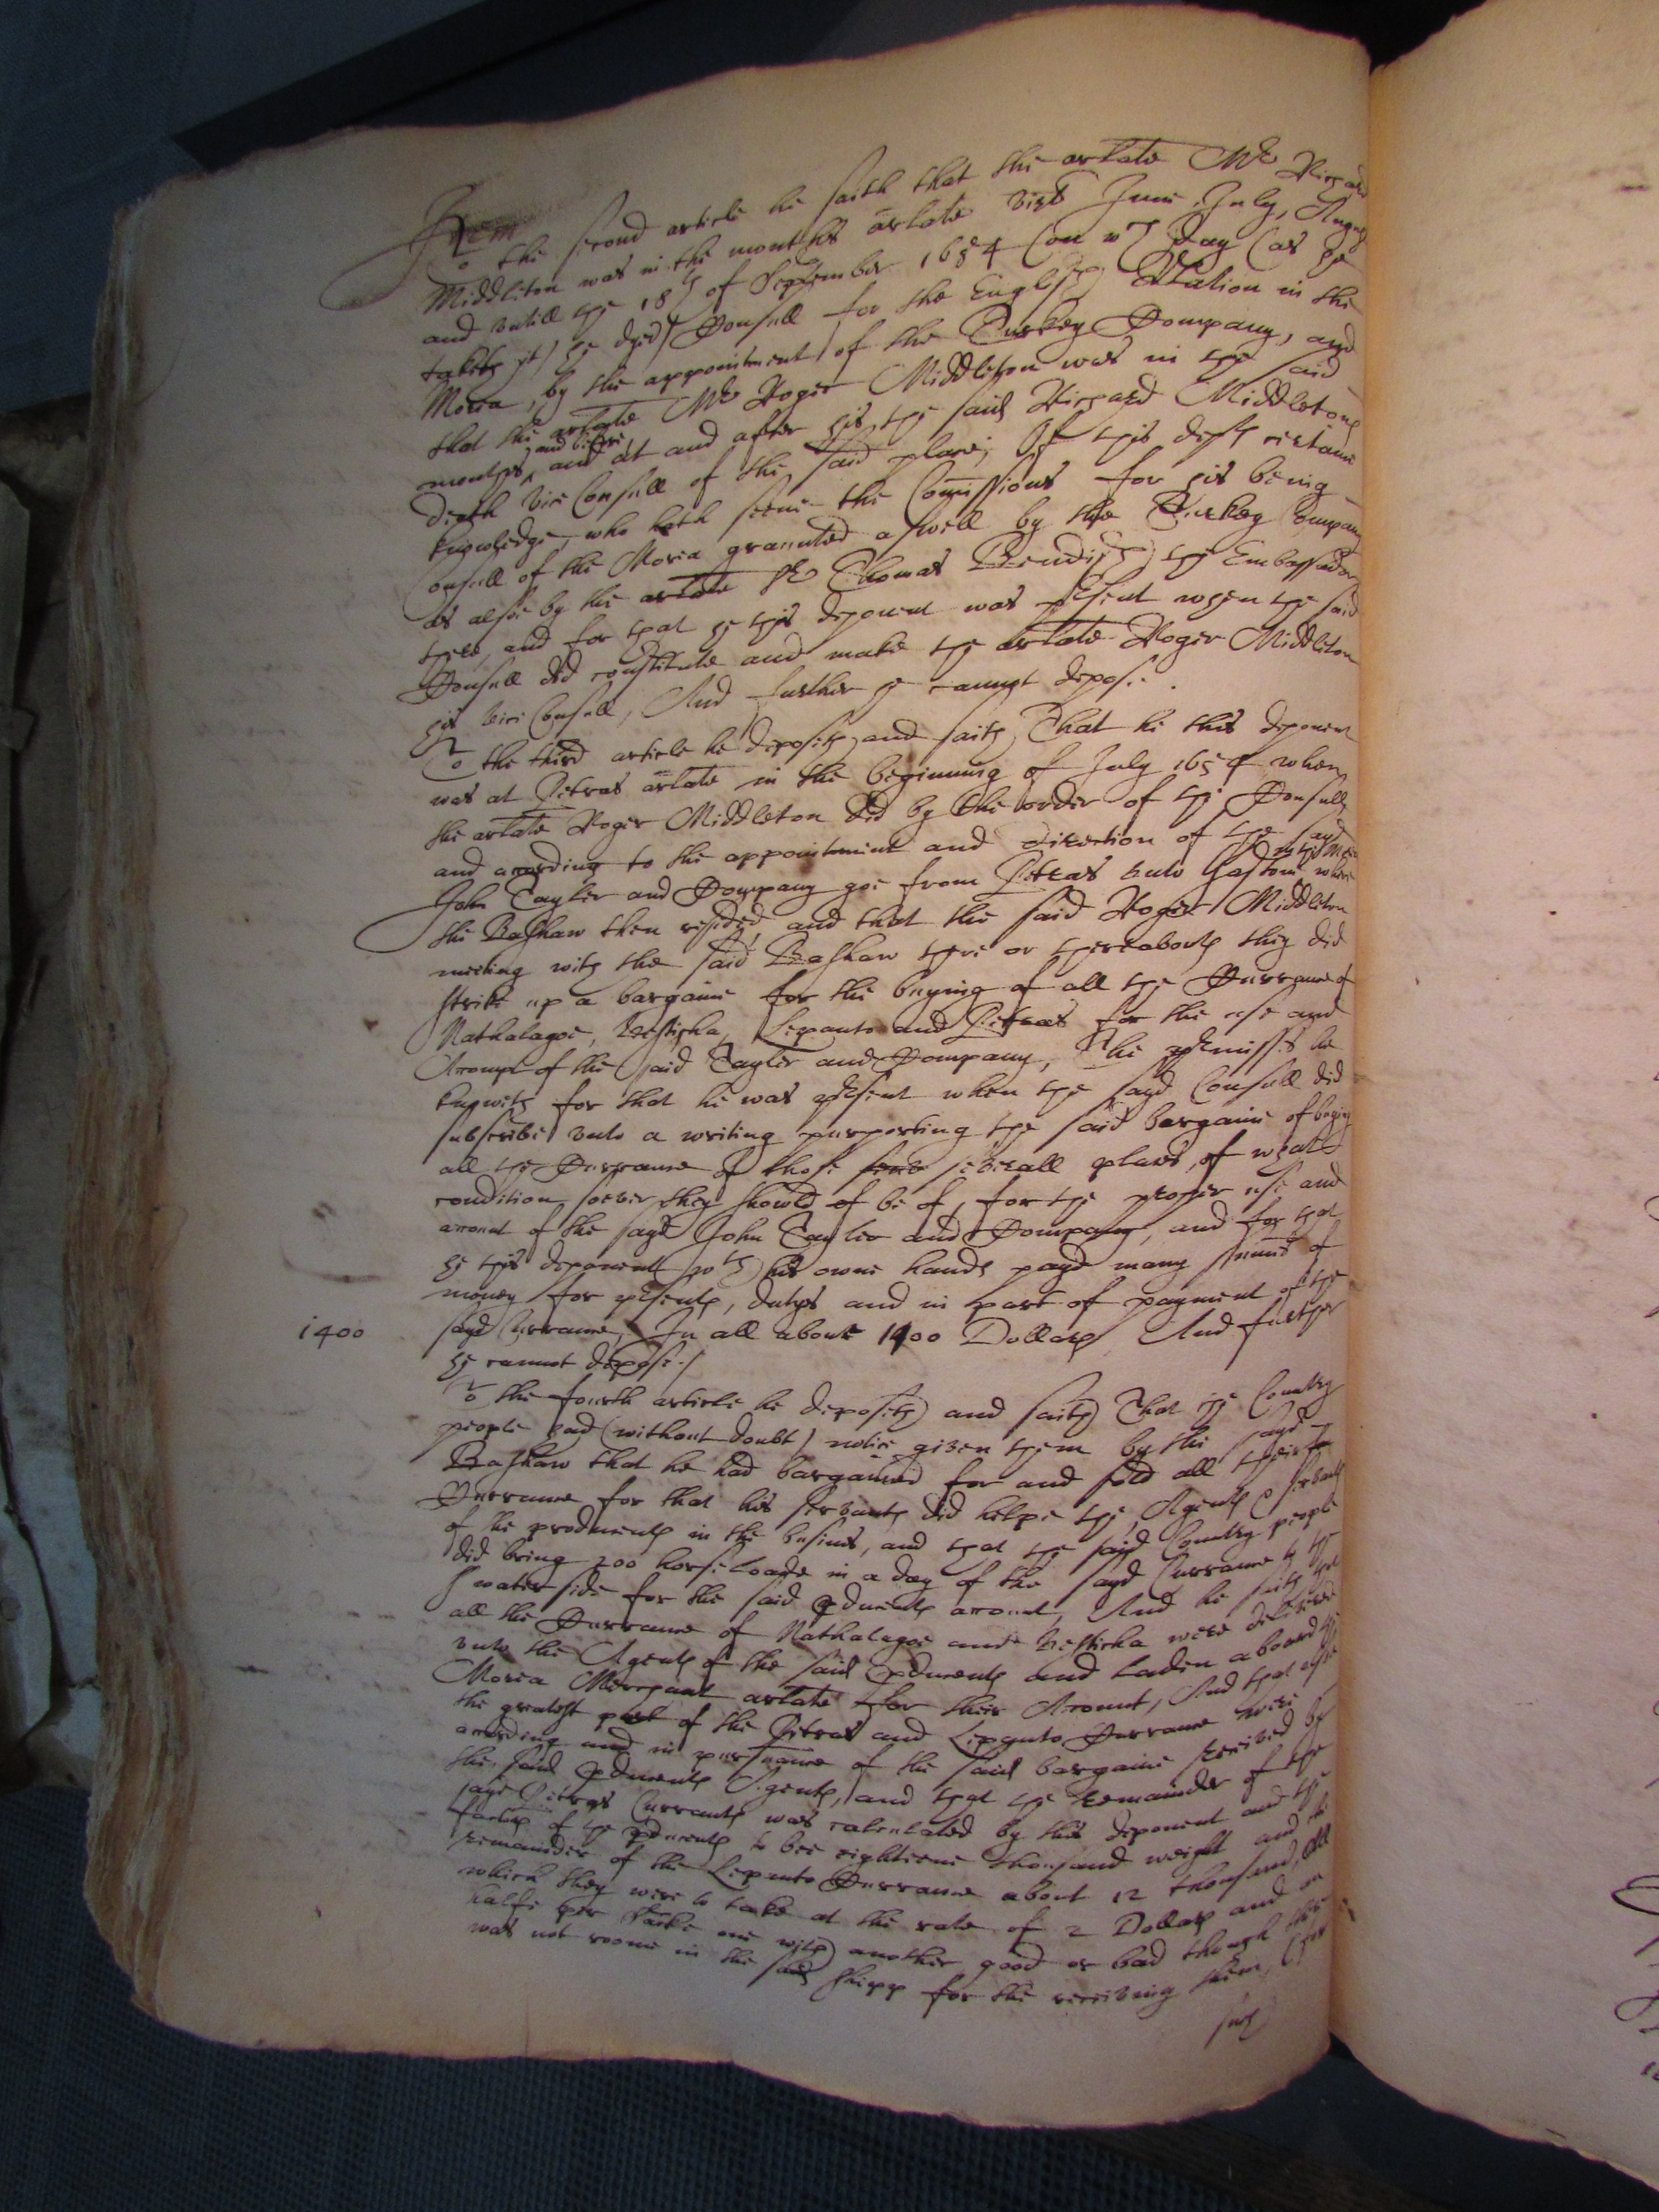 Item
To the second article he saith that the arlate Mr Richard
Middleton was in the months arlate vizt June, July, August
and untill the 18th of September 1654 (on wch day (as he
taketh yt) he dyed) Consull for the English Nation in the
Morea, by the appointment of the Turkey Company, and
that the arlate Mr Roger Middleton was in the said
months, and before and at and after his the said Richard Middletons
death Vice Consull of the said place; Of this depts certaine
knowledge, who hath seene the Comissions for his being
Consull of the Morea graunted aswell by the Turkey Company
as alsoe by the arlate Sr Thomas Bendish the Embassador
there, and for that he this deponent was present when the said
Consull did constitute and make the arlate Roger Middleton
his Vice Consull, And further he cannot depose.
To the third article he deposeth and saith That he this deponent
was at Petras arlate in the beginning of July 1654 when
the arlate Roger Middleton did by the order of the Consull
and according to the appointment and direction of the sayd
John Tayler and Company goe from Petras unto Gastone where
the Bashaw then resided, and that the said Roger Middleton
meeting with the said Bashaw there or thereabouts they did
strike up a bargaine for the buying of all the Currance of
Nathalagoe, Vestisha, Lepanto and Petras for the use and
Accompt of the said Tayler and Company, The premisses he
knoweth for that he was present when the sayd Consull did
subscribe unto a writing purporting the said bargaine of buying
all the Currance of those severall places, of what
condition soever they should of be of, for the proper use and
account of the sayd John Tayler and Company, and for that
he this deponent wth his owne hands payd many summs of
money for presents, dutyes and in part of payment of the
1400 sayd Currance, In all about 1400 Dollars, And further
he cannot depose./
To the fourth article he deposeth and saith That the Countrey
people had (without doubt) notice given them by the sayd
Bashaw that he had bargained for and sold all their
Currance for that his servants did helpe the Agents & servants
of the producents in the busines, and that the said Countrey people
did bring 200 horse loade in a day of the sayd Currance to the
water side for the said producents account, And he saith that
all the Currance of Nathalagoe and Vestisha were delivered
unto the Agents of the said producents and laden aboard the
Morea Merchant arlate for their Account, And that alsoe
the greatest part of the Petras and Lepanto Currance were
according and in pursuance of the said bargaine received by
the said producents Agents, and that the remainder of the
said Petras Currants was calculated by this deponent and the
factors of the producents to bee eighteene thousand weight and the
remainder of the Lepanto Currance about 12 thousand, all
which they were to take at the rate of 2 Dollars and an
halfe per sacke one with another good or bad though there
was not roome in the said shipp for the receiving them, (for
such